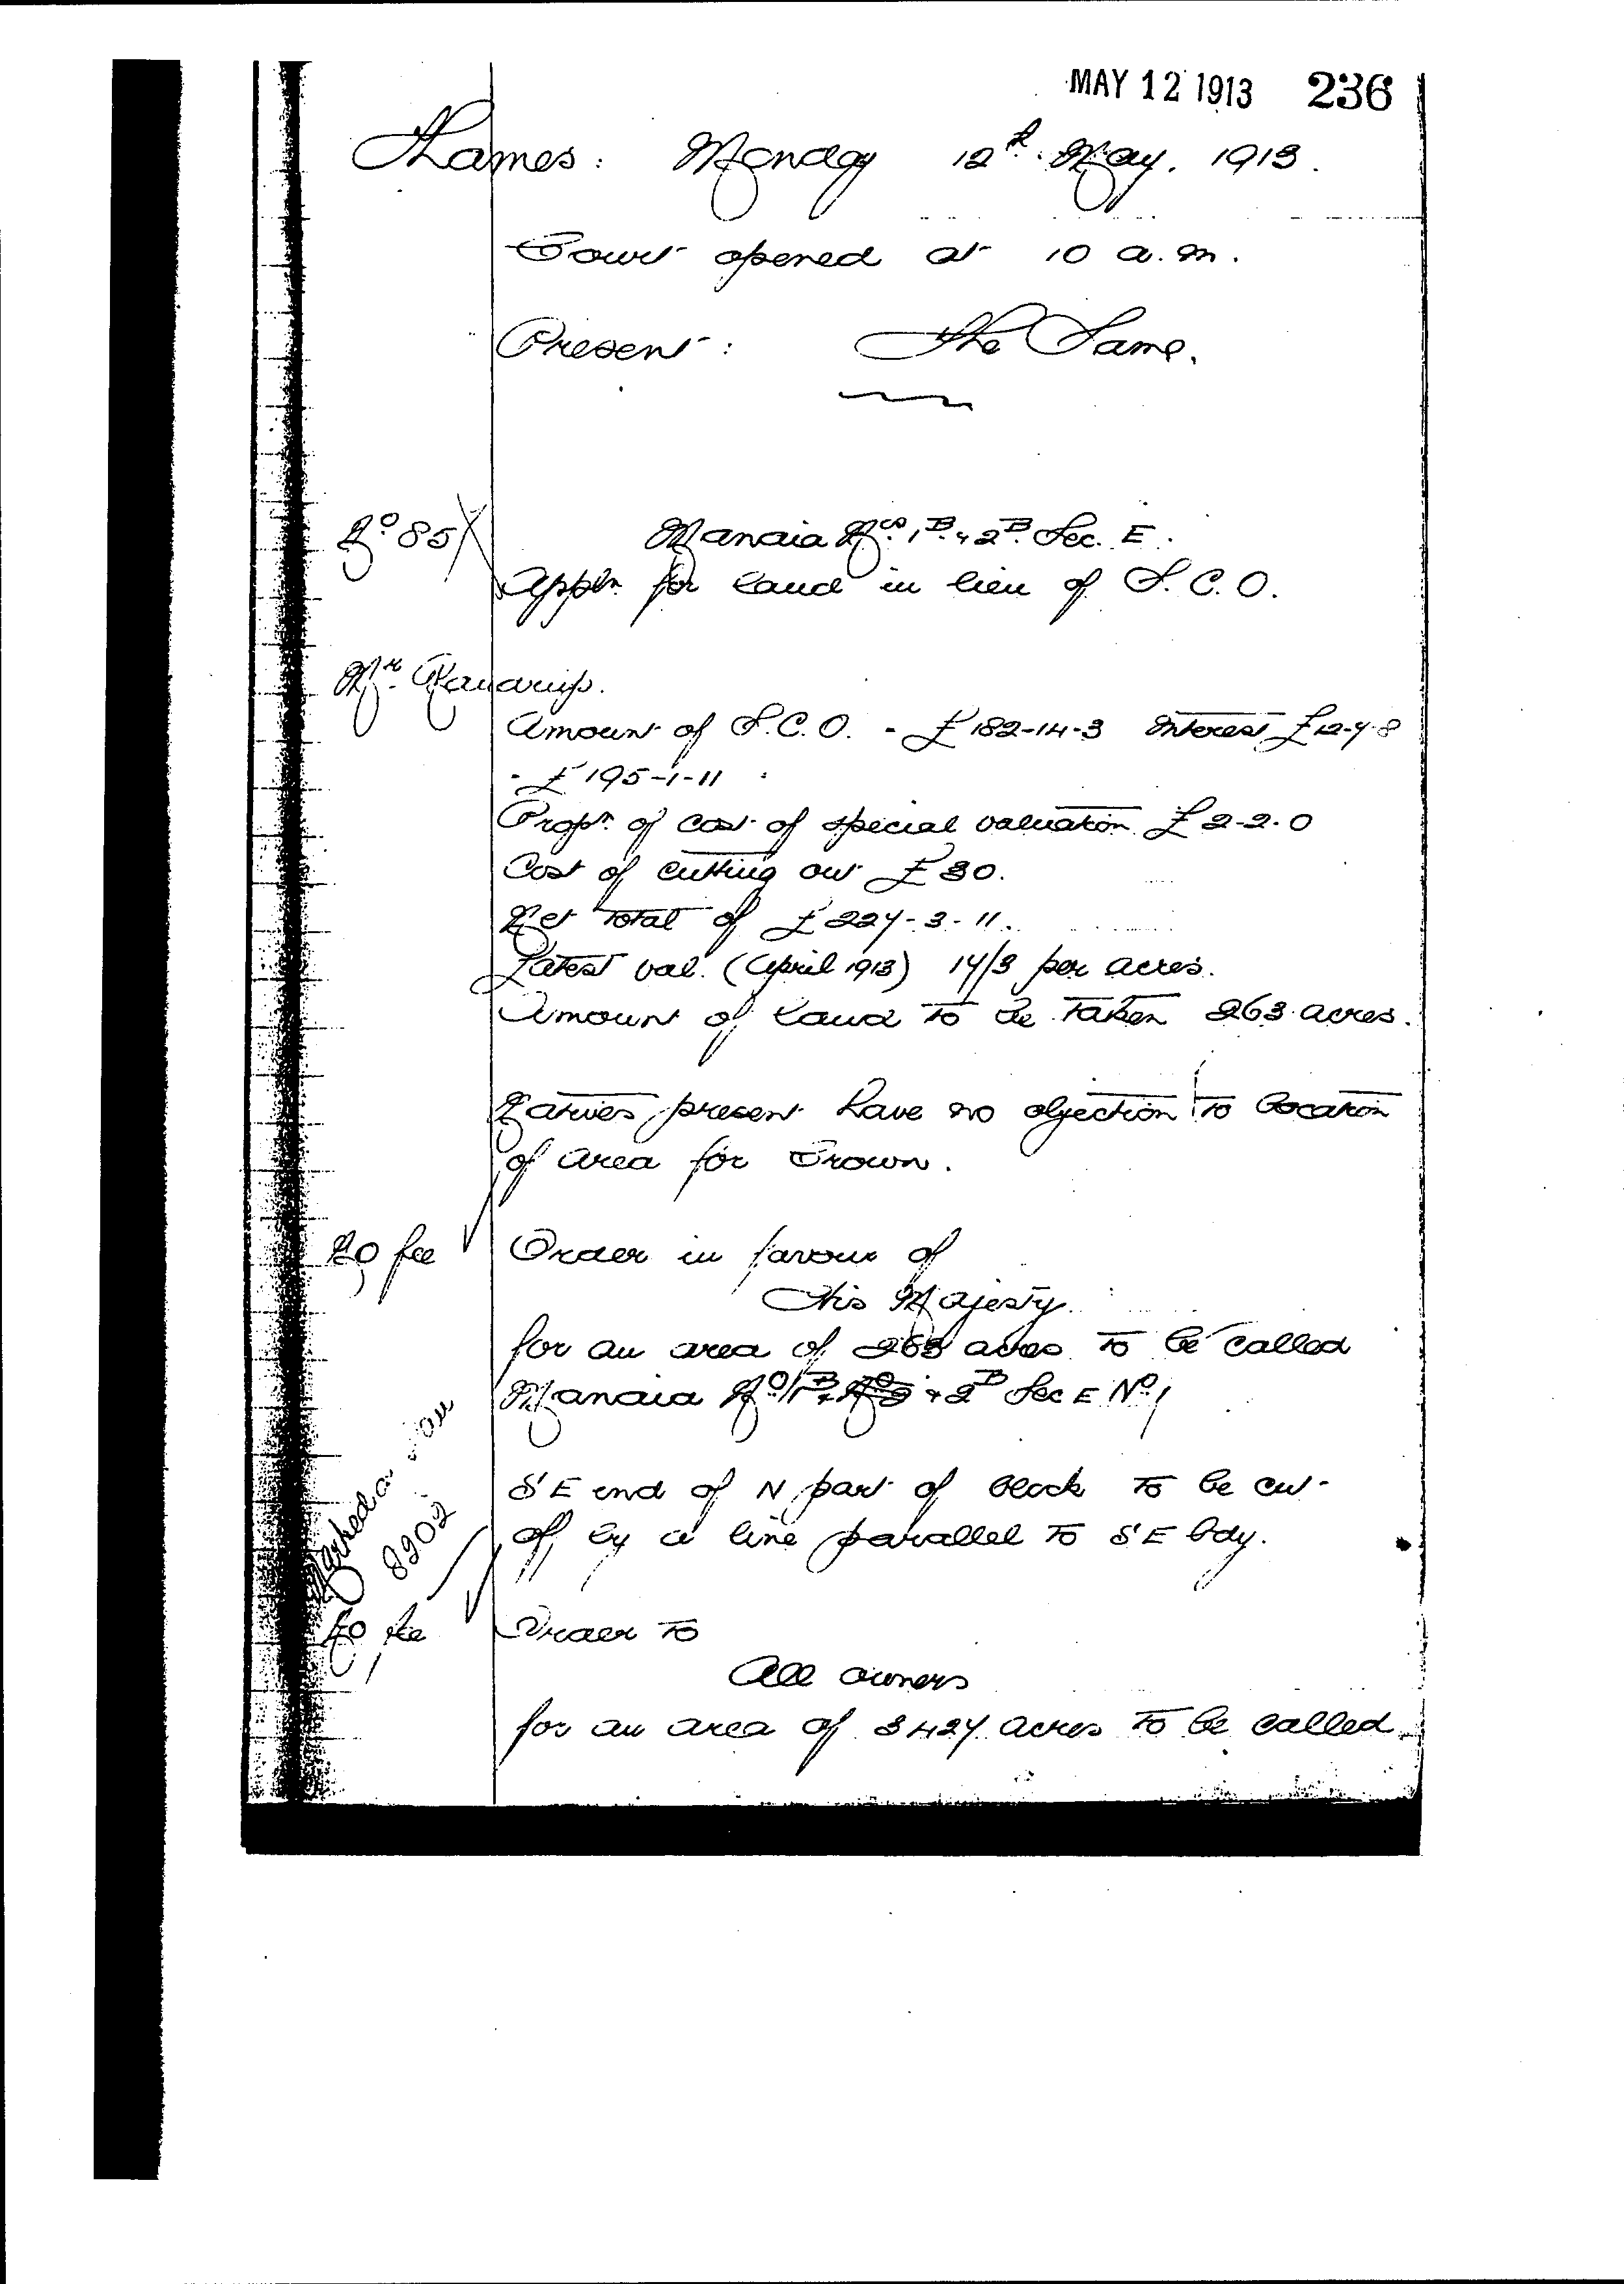 MAY 12 1913 236
Thames: Monday 12th May. 1913.
Court opened at 10 a.m.
Present: The Same.
No 85 Manaia Nos 1B & 2B Sec. E.
Appln. for land in lieu of S.C.O.
Mr.
Amount of S.C.O. - £182-14-3 Interest £12-7-8
- £195-1-11
Propn. of cost of special valuation £2-2-0
Cost of cutting out £30.
Net total of £227-3-11.
Latest val. (April 1913) 17/3 per acres.
Amount of land to be taken 263 acres.
Natives present have no objection to location
of area for Crown.
No fee Order in favour of
His Majesty.
for an area of 263 acres to be called
Manaia No 1B & No 2 & 2B Sec E No 1
S'E end of N part of block to be cut
off by a line parallel to S'E bdy.
Marked on Plan
8202
No fee Order to
All owners
for an area of 3427 acres to be called